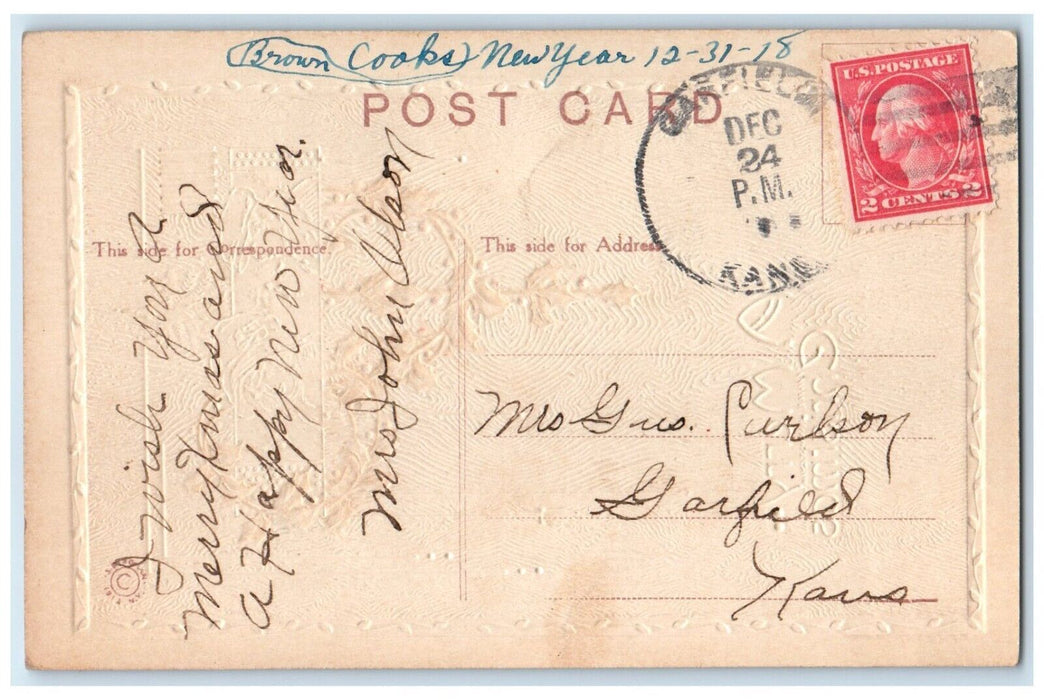 Brown Cooks New Year 12-31-18
POST CARD
U.S. POSTAGE
2 CENTS 2
DEC
24
P.M.
KANS
This side for Correspondence.
This side for Address
I wish you a
Merry Xmas and
a Happy New Year.
Mrs John Olson
Mrs Gus.
Garfield
Kans